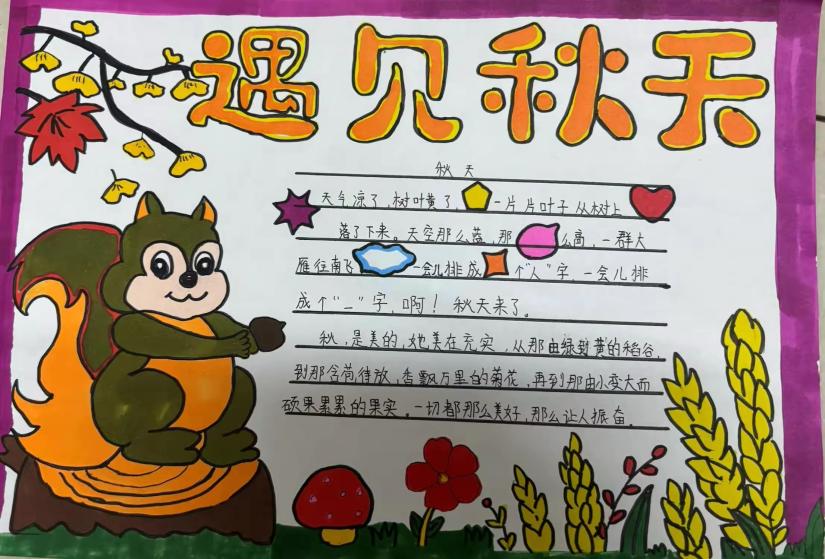 遇见秋天
秋天
天气凉了，树叶黄了，一片片叶子从树上
落了下来。天空那么蓝，那么高，一群大
雁往南飞，一会儿排成个"人"字，一会儿排
成个"一"字，啊！秋天来了。
秋，是美的，她美在充实，从那由绿到黄的稻谷，
到那含苞待放，香飘万里的菊花，再到那由小变大而
硕果累累的果实。一切都那么美好，那么让人振奋。